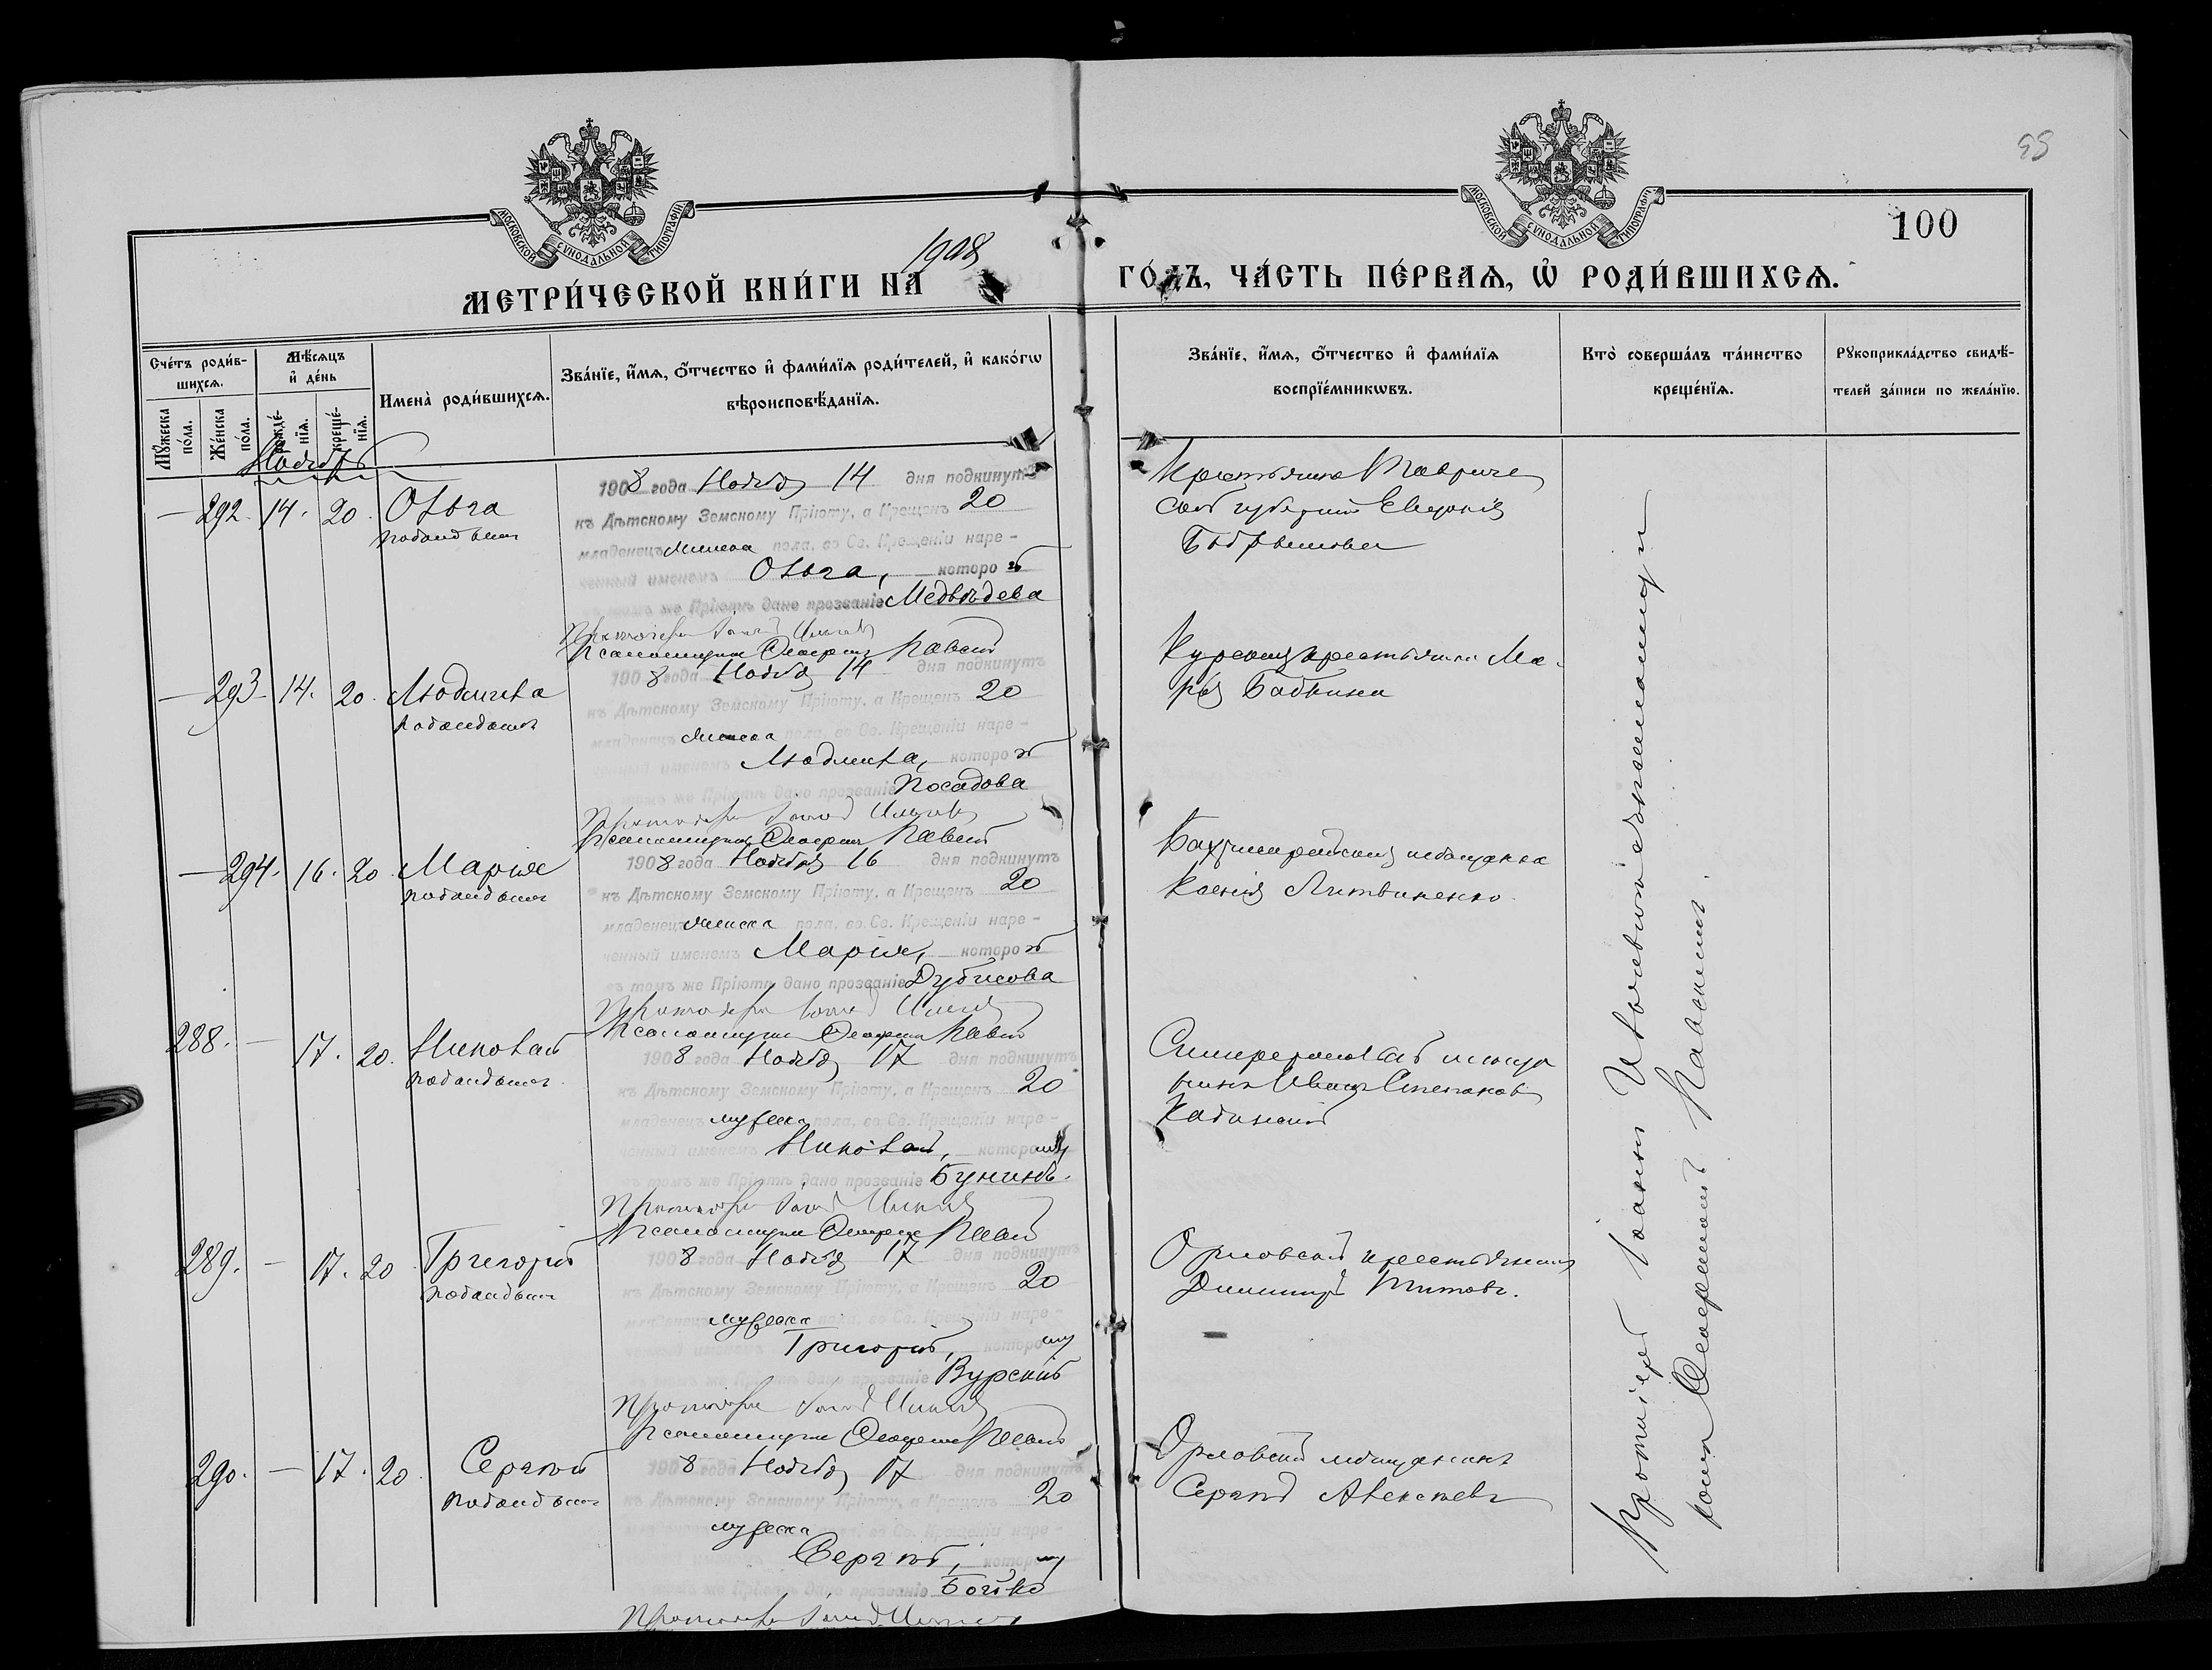 МОСКОВСКОЙ СѴНОДАЛЬНОЙ ТИПОГРАФІИ
МОСКОВСКОЙ СѴНОДАЛЬНОЙ ТИПОГРАФІИ
100
МЕТРИ́ЧЕСКОЙ КНИ́ГИ НА 1908 ГО́ДЪ, ЧА́СТЬ ПЕ́РВАѦ, Ѡ҆ РОДИ́ВШИХСѦ.
Сче́тъ роди́в-
шихсѧ.
Мꙋ́жеска по́ла.
Же́нска по́ла.
Мѣ́сѧцъ
и҆ де́нь
рожде́-
нїѧ.
креще́-
нїѧ.
Имена̀ роди́вшихсѧ.
Зва́нїе, и҆́мѧ, ѻ҆́тчество и҆ фами́лїѧ роди́телей, и҆ како́гѡ
вѣроисповѣ́данїѧ.
Зва́нїе, и҆́мѧ, ѻ҆́тчество и҆ фами́лїѧ
воспрїе́мникѡвъ.
Кто̀ соверша́лъ та́инство
креще́нїѧ.
Рꙋкоприкла́дство свидѣ́-
телей за́писи по жела́нїю.
Ноябрь
— 292. 14. 20. Ольга
1908 года Ноября 14 дня подкинутъ
къ Дѣтскому Земскому Пріюту, а Крещенъ 20
младенецъ женска пола, во Св. Крещеніи наре-
ченный именемъ Ольга, которой
въ томъ же Пріютѣ дано прозваніе Медвѣдева
Протоіерей
Псаломщикъ
Крестьянка Тавриче
ской губерніи Евдокія
— 293. 14. 20. Людмила
1908 года Ноября 14 дня подкинутъ
къ Дѣтскому Земскому Пріюту, а Крещенъ 20
младенецъ женска пола, во Св. Крещеніи наре-
ченный именемъ Людмила, которой
въ томъ же Пріютѣ дано прозваніе Посадова
Протоіерей
Псаломщикъ
Курская крестьянка Ма-
рія Бабкина
— 294. 16. 20. Марія
1908 года Ноября 16 дня подкинутъ
къ Дѣтскому Земскому Пріюту, а Крещенъ 20
младенецъ женска пола, во Св. Крещеніи наре-
ченный именемъ Марія, которой
въ томъ же Пріютѣ дано прозваніе Дубисова
Протоіерей
Псаломщикъ
Бахчисарайская мѣщанка
Ксенія Литвиненко
288. — 17. 20. Николай
1908 года Ноября 17 дня подкинутъ
къ Дѣтскому Земскому Пріюту, а Крещенъ 20
младенецъ мужеска пола, во Св. Крещеніи наре-
ченный именемъ Николай, которому
въ томъ же Пріютѣ дано прозваніе Бунинъ.
Протоіерей
Псаломщикъ
Симферопольскій мѣща
нинъ Иванъ Степановъ
289. — 17. 20 Григорій
1908 года Ноября 17 дня подкинутъ
къ Дѣтскому Земскому Пріюту, а Крещенъ 20
младенецъ мужеска пола, во Св. Крещеніи наре-
ченный именемъ Григорій, которому
въ томъ же Пріютѣ дано прозваніе Вурскій
Протоіерей
Псаломщикъ
Орловскій крестьянинъ
Димитрій Титовъ.
290. — 17. 20. Сергѣй
1908 года Ноября 17 дня подкинутъ
къ Дѣтскому Земскому Пріюту, а Крещенъ 20
мужеска пола, во Св. Крещеніи наре-
Сергѣй, которому
въ томъ же Пріютѣ дано прозваніе Бойко
Протоіерей
Орловскій мѣщанинъ
Сергѣй Алексѣевъ
Протоіерей Іоаннъ съ псаломщи
комъ